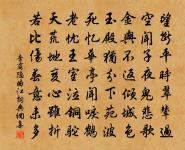 望斷平時翠輦過
空聞子夜鬼悲歌
金輿不返傾城色
玉殿猶分下苑波
死憶華亭聞唳鶴
老憂王室泣銅駝
天荒地變心雖折
若比傷春意未多
李商隱曲江